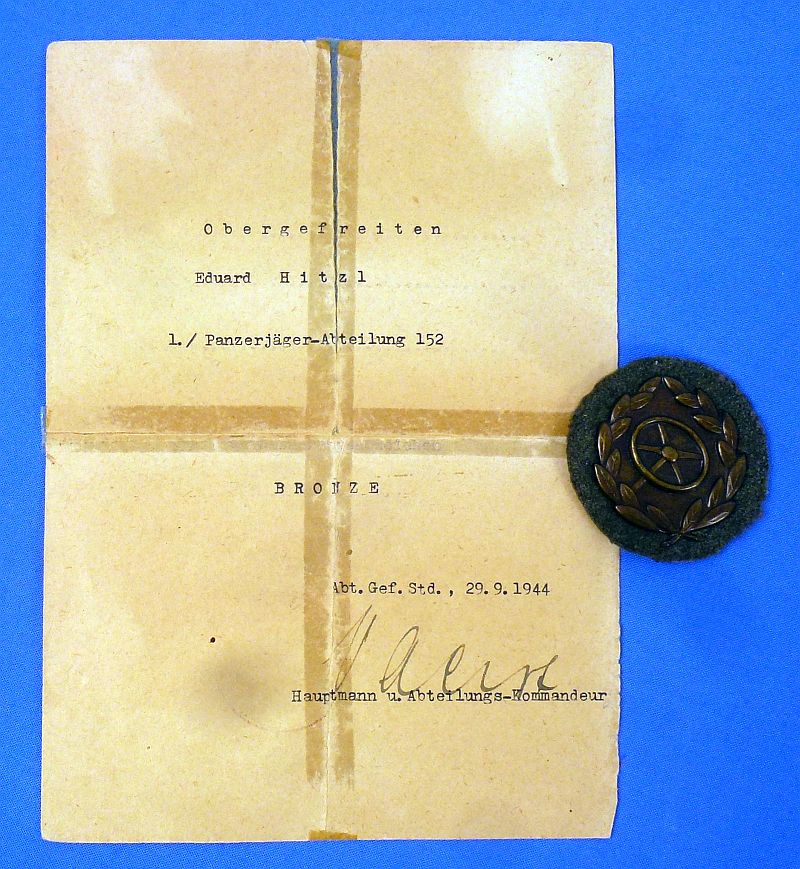 Obergefreiten
Eduard Hitzl
1./ Panzerjäger-Abteilung 152
BRONZE
Abt.Gef.Std., 29.9.1944
Hauptmann u. Abteilungs-Kommandeur